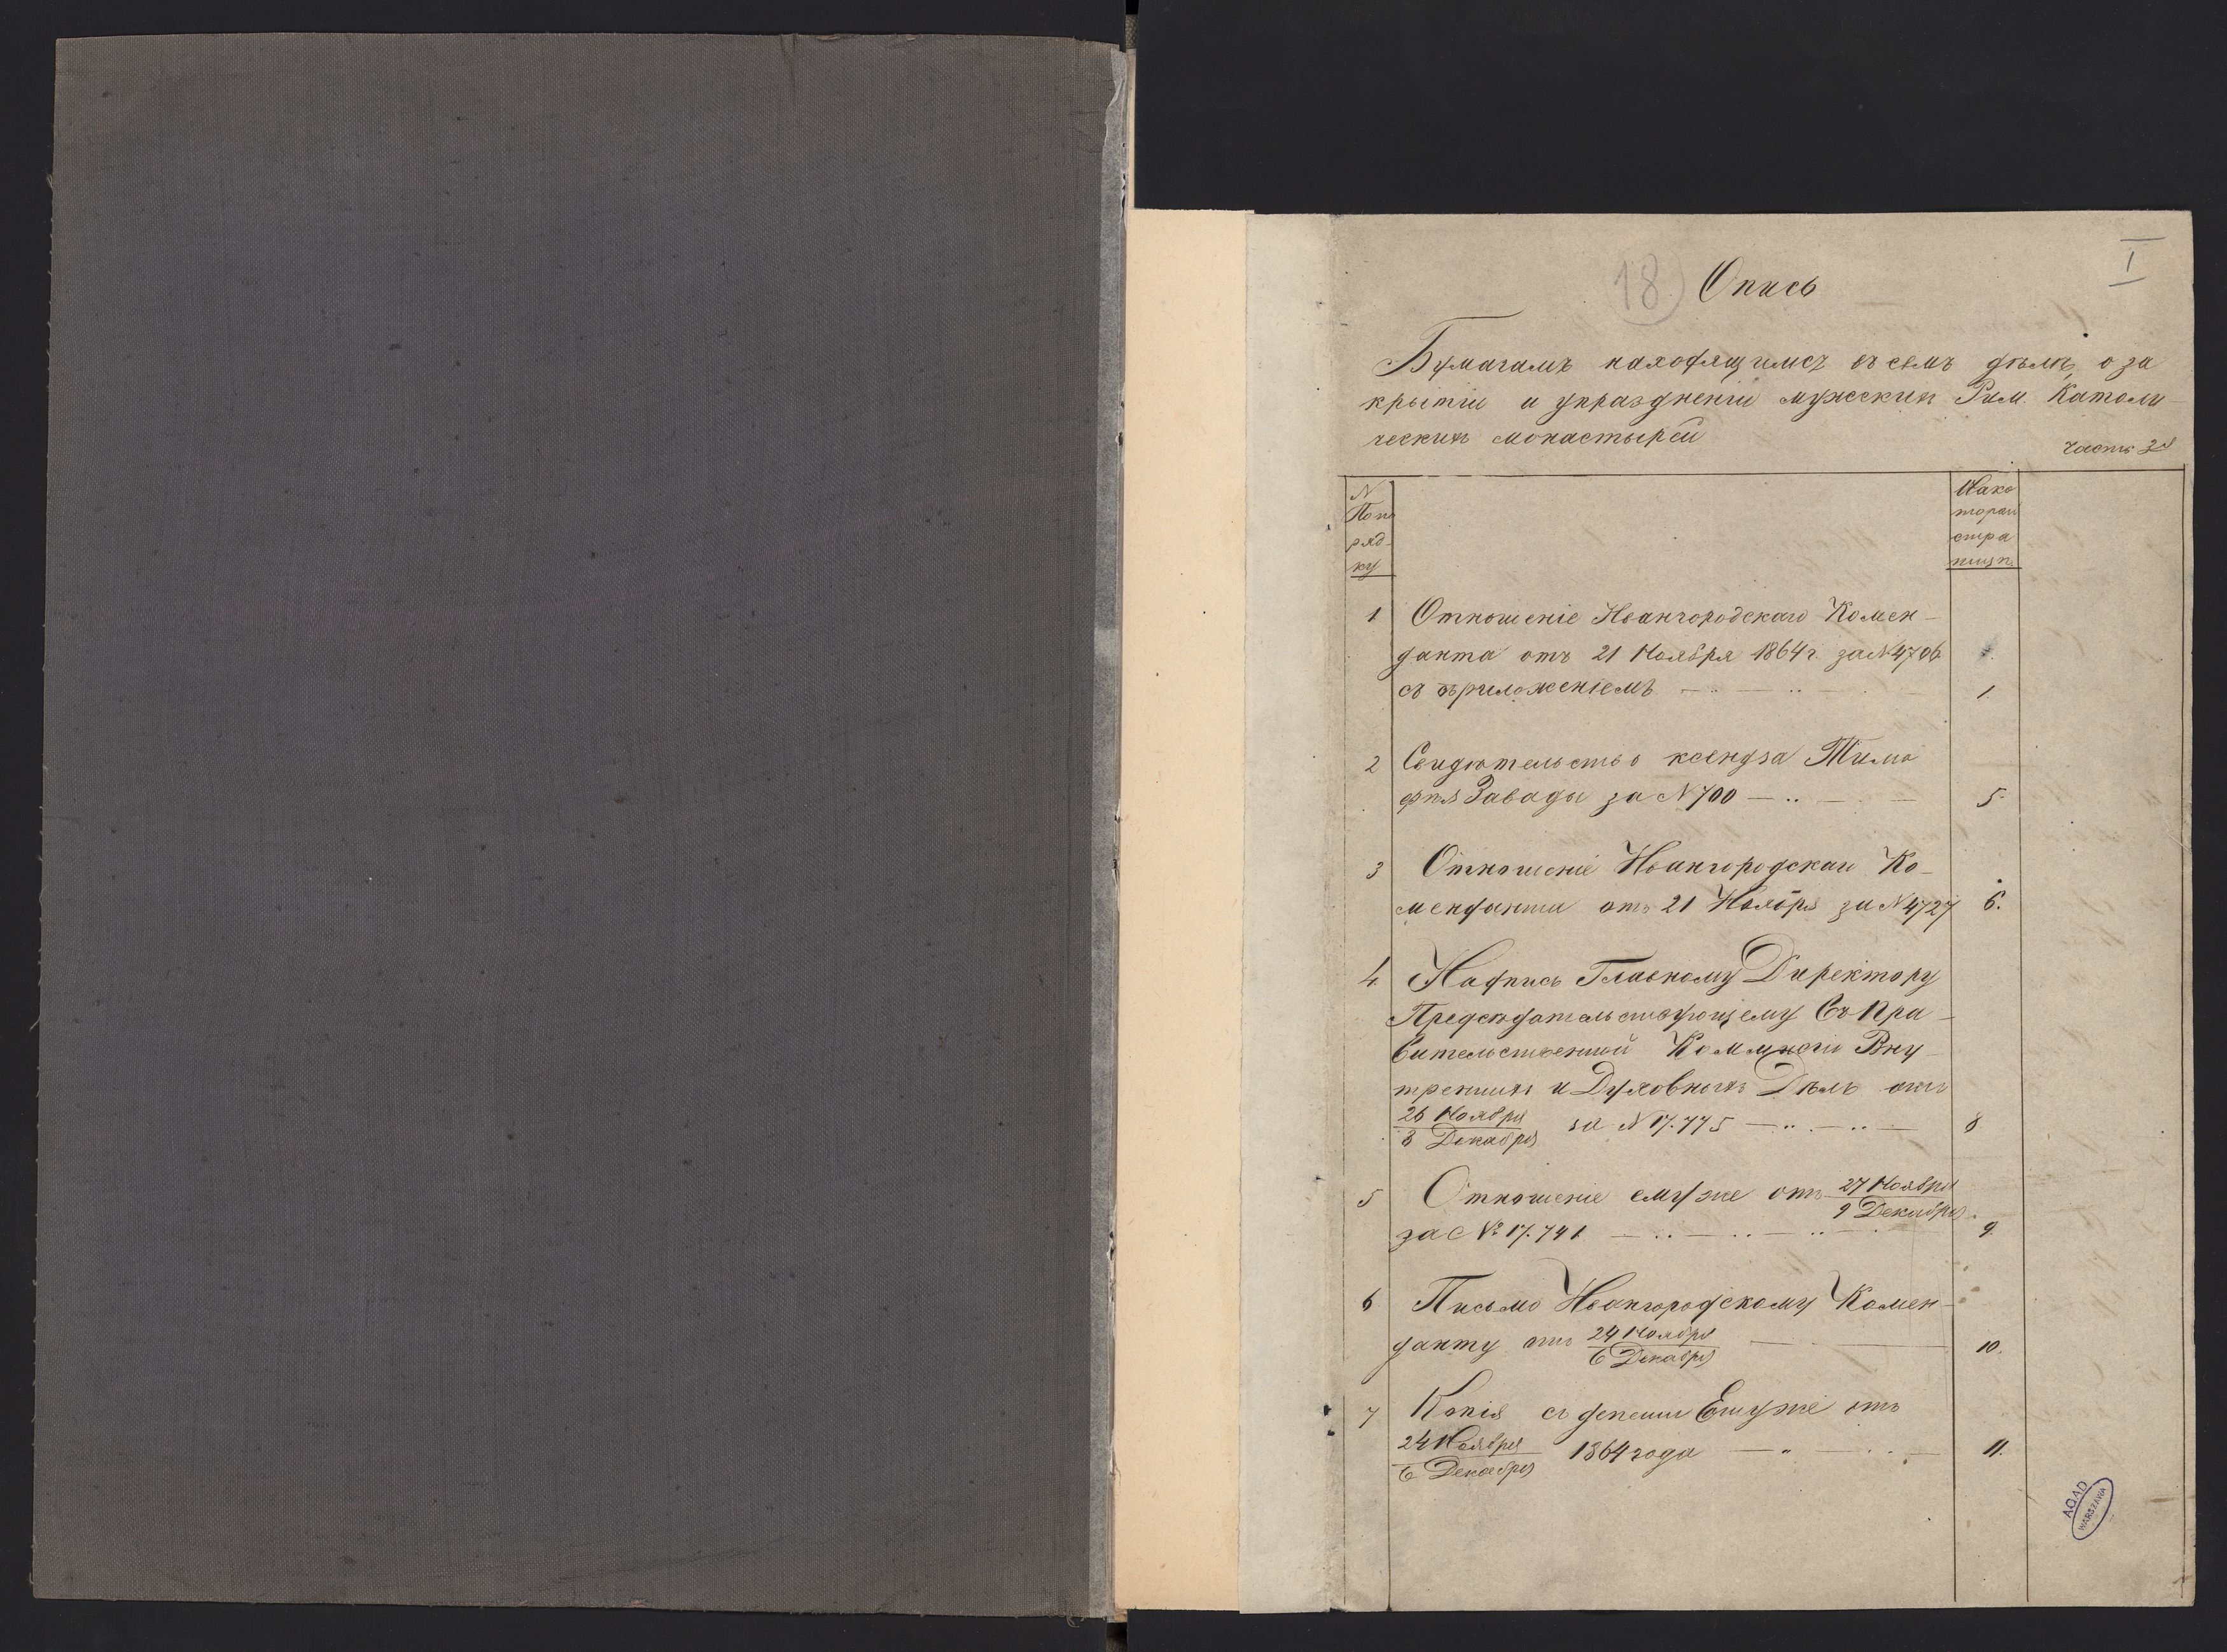 I
18)
Опись
Бумагамъ находящимся въ семъ дѣлѣ о за
крытіи и упраздненіи мужскихъ Рим. Католи-
ческихъ монастырей
часть 3я
N
По по
ряд-
ку
На ко
торой
стра
ницѣ
1 Отношеніе Ивангородскаго Комен-
данта отъ 21 Ноября 1864 г. за N 4706
съ приложеніемъ 1.
2 Свидѣтельство ксендза Тимо
фѣя Завады за N 700 5.
3 Отношеніе Ивангородскаго Ко-
менданта отъ 21 Ноября за N 4727 6.
4 Надпись Главному Директору
Предсѣдательствующему Въ Пра-
вительственной Коммисіи Вну-
треннихъ и Духовныхъ Дѣлъ отъ
26 Ноября
8 Декабря за N 17.775 8
5 Отношеніе ему же отъ 27 Ноября
9 Декабря
за № 17.741 9.
6 Письмо Ивангородскому Комен-
данту отъ 24 Ноября
6 Декабря 10.
7 Копія съ депеши Ему же отъ
24 Ноября
6 Декабря 1864 года 11.
AGAD
WARSZAWA